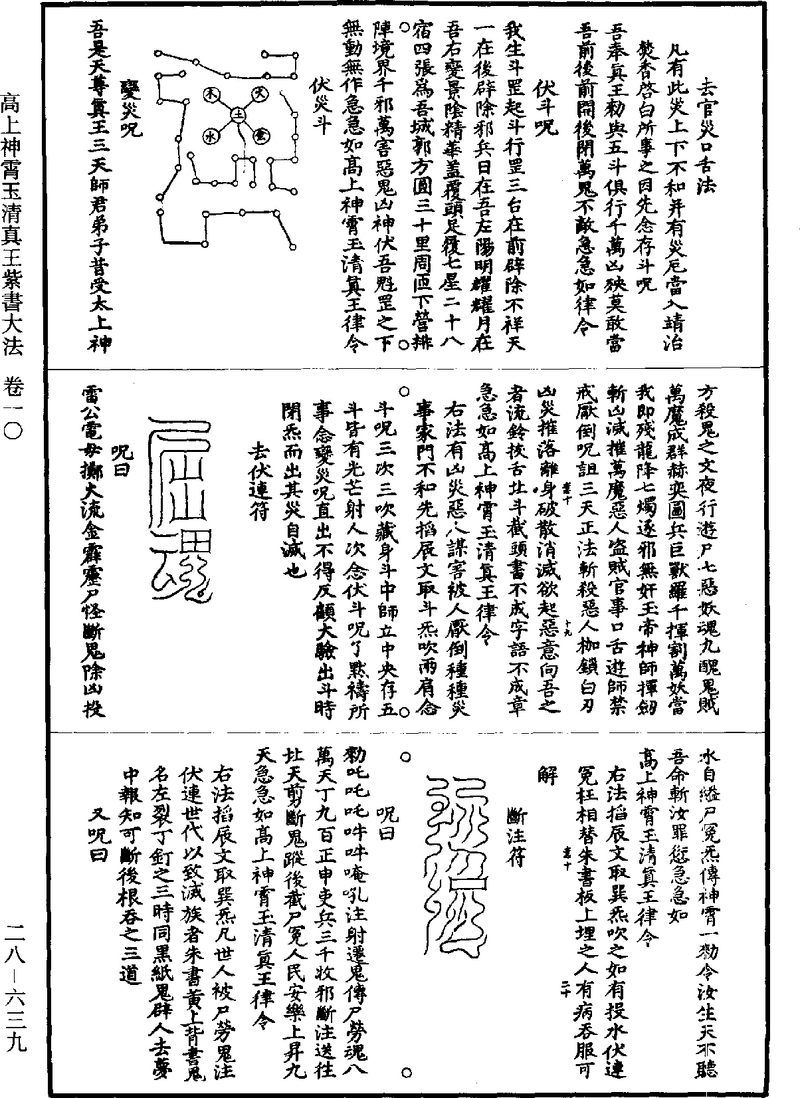 高上神霄玉清真王紫書大法　卷一〇
二八—六三九
去官災口舌法
凡有此災上下不和并有災厄當入靖治
焚香啓白所事之因先念存斗呪
吾奉真王勑與五斗俱行千萬凶殃莫敢當
吾前後前開後閉萬鬼不敵急急如律令
伏斗呪
我生斗罡起斗行罡三台在前辟除不祥天
一在後辟除邪兵日在吾左陽明耀耀月在
吾右變景陰精華蓋覆頭足履七星二十八
宿四張為吾城郭方圓三十里周匝下營排
陣境界千邪萬害惡鬼凶神伏吾魁罡之下
無動無作急急如高上神霄玉清真王律令
伏災斗
木
火
土
水
變災呪
吾是天尊真王三天師君弟子昔受太上神
方殺鬼之文夜行遊尸七惡妖魂九醜鬼賊
萬魔成群赫奕圖兵巨獸羅千揮割萬妖當
我即殘龍降七燭逐邪無奸玉帝神師揮劒
斬凶滅摧萬魔惡人盜賊官事口舌遊師禁
戒厭倒呪詛三天正法斬殺惡人枷鎖白刃
凶災摧落離身破散消滅欲起惡意向吾之
者流鈴挾舌北斗截頭書不成字語不成章
急急如高上神霄玉清真王律令
右法有凶災惡人謀害被人厭倒種種災
事家門不和先搯辰文取斗炁吹兩肩念
斗呪三次三吹藏身斗中師立中央存五
斗皆有光芒射人次念伏斗呪了黙禱所
事念變災呪直出不得反顧大驗出斗時
閉炁而出其災自滅也
去伏連符
呪曰
雷公電母擲火流金霹靂尸怪斷鬼除凶投
水自縊尸冤炁傳神霄一勑令汝生天不聽
吾命斬汝罪愆急急如
高上神霄玉清真王律令
右法搯辰文取巽炁吹之如有投水伏連
冤枉相替朱書板上埋之人有病吞服可
解
斷注符
呪曰
勑吒吒吒吽吽唵吼注射遷鬼傳尸勞魂八
萬天丁九百正申吏兵三千收邪斷注送往
北天剪斷鬼蹤後截尸冤人民安樂上昇九
天急急如高上神霄玉清真王律令
右法搯辰文取巽炁凡世人被尸勞鬼注
伏連世代以致滅族者朱書黃上背書鬼
名左裂丁釘之三時同黑紙鬼辟人去夢
中報知可斷後根吞之三道
又呪曰